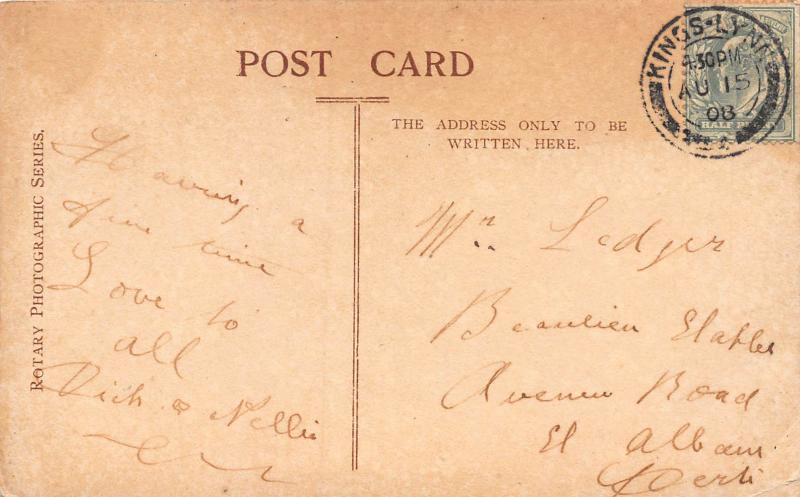 POST CARD
THE ADDRESS ONLY TO BE
WRITTEN HERE.
ROTARY PHOTOGRAPHIC SERIES.
KINGS-LYNN
9.30PM
AU 15
08
HALF
Having a
fine time
Love to
all
Dick & Nellie
Mr. Ledger
Beaulieu Stables
Avenue Road
St Albans
Herts